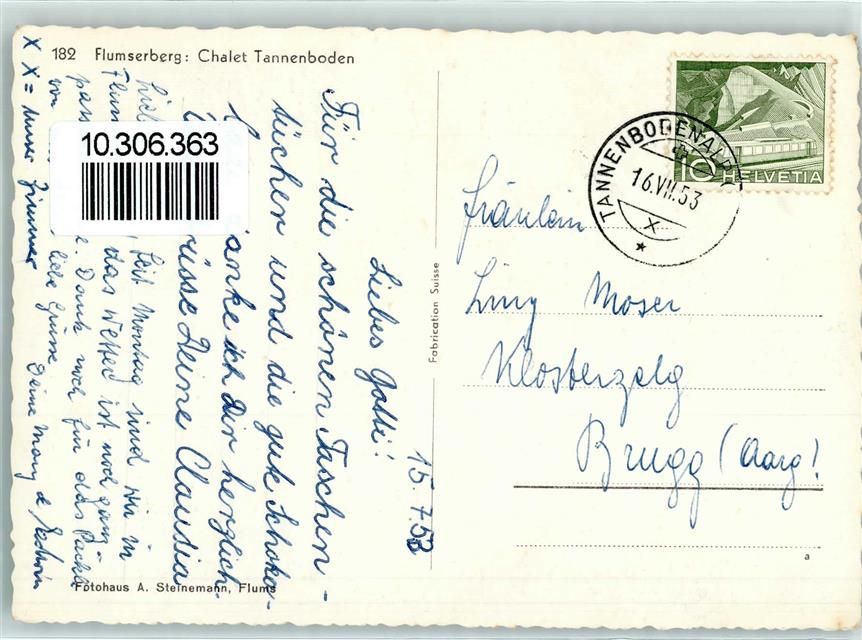 182 Flumserberg: Chalet Tannenboden
15.7.53
Liebes Gotti!
Für die schönen Taschen-
tücher und die gute Schoko-
danke ich Dir herzlich.
Deine Claudia
Seit Montag sind wir in
das Wetter ist noch ganz
Dank noch für das Päckli
liebe Grüsse Deine Mary &
X X = unser Zimmer
Fotohaus A. Steinemann, Flums
10.306.363
Fabrication Suisse
TANNENBODENALP
16.VII.53
X
10 HELVETIA
Fräulein
Liny Moser
Klosterzelg
Brugg (Aarg!
a